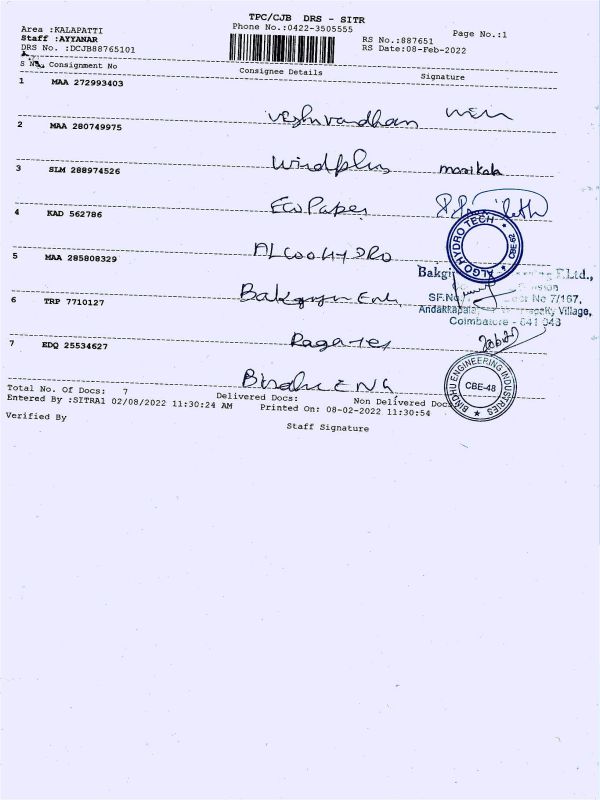 TPC/CJB DRS - SITR
Phone No.:0422-3505555
Area :KALAPATTI
Staff :AYYANAR
DRS No. :DCJB88765101
RS No.:887651
RS Date:08-Feb-2022
Page No.:1
Consignment No Consignee Details Signature
1 MAA 272993403 Vishnvardhan
2 MAA 280749975 Windplus manikala
3 SLM 288974526 Eco Paper
4 KAD 562786 ALGOOHYDRO
ALGO HYDRO TECH
5 MAA 285808329 Bakgiya Eng
Bakgi P.Ltd.,
SF.No. No 7/167,
Village,
Coimbatore - 641 048
6 TRP 7710127 Ragates
7 EDQ 25534627 Bindhu ENG
BINDHU ENGINEERING INDUSTRIES
CBE-48
Total No. Of Docs: 7 Delivered Docs: Non Delivered Doc
Entered By :SITRA1 02/08/2022 11:30:24 AM Printed On: 08-02-2022 11:30:54
Verified By Staff Signature